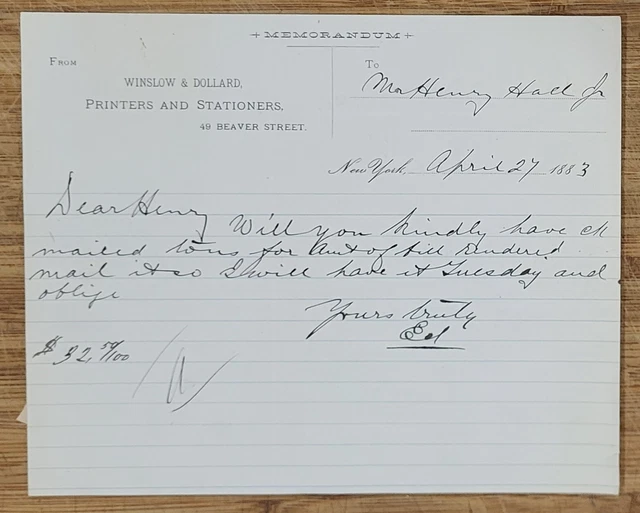 MEMORANDUM
FROM
TO
WINSLOW & DOLLARD,
PRINTERS AND STATIONERS,
49 BEAVER STREET.
Mr Henry Hall Jr
New York, April 27 1883
Dear Henry Will you kindly have ck
mailed to us for Amt of bill rendered
mail it so I will have it Tuesday and
oblige
Yours truly
Ed
$32,50/100